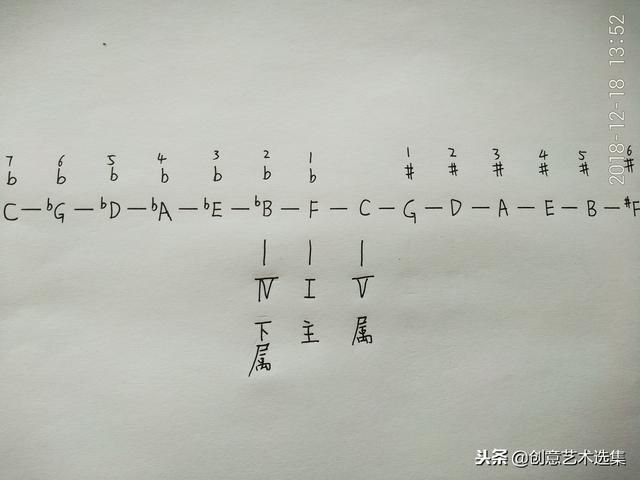 2018-12-18 13:52
7 6 5 4 3 2 1 1 2 3 4 5 6
b b b b b b b # # # # # #
C — bG — bD — bA — bE — bB — F — C — G — D — A — E — B — #F
IV I V
下属 主 属
头条 @创意艺术选集